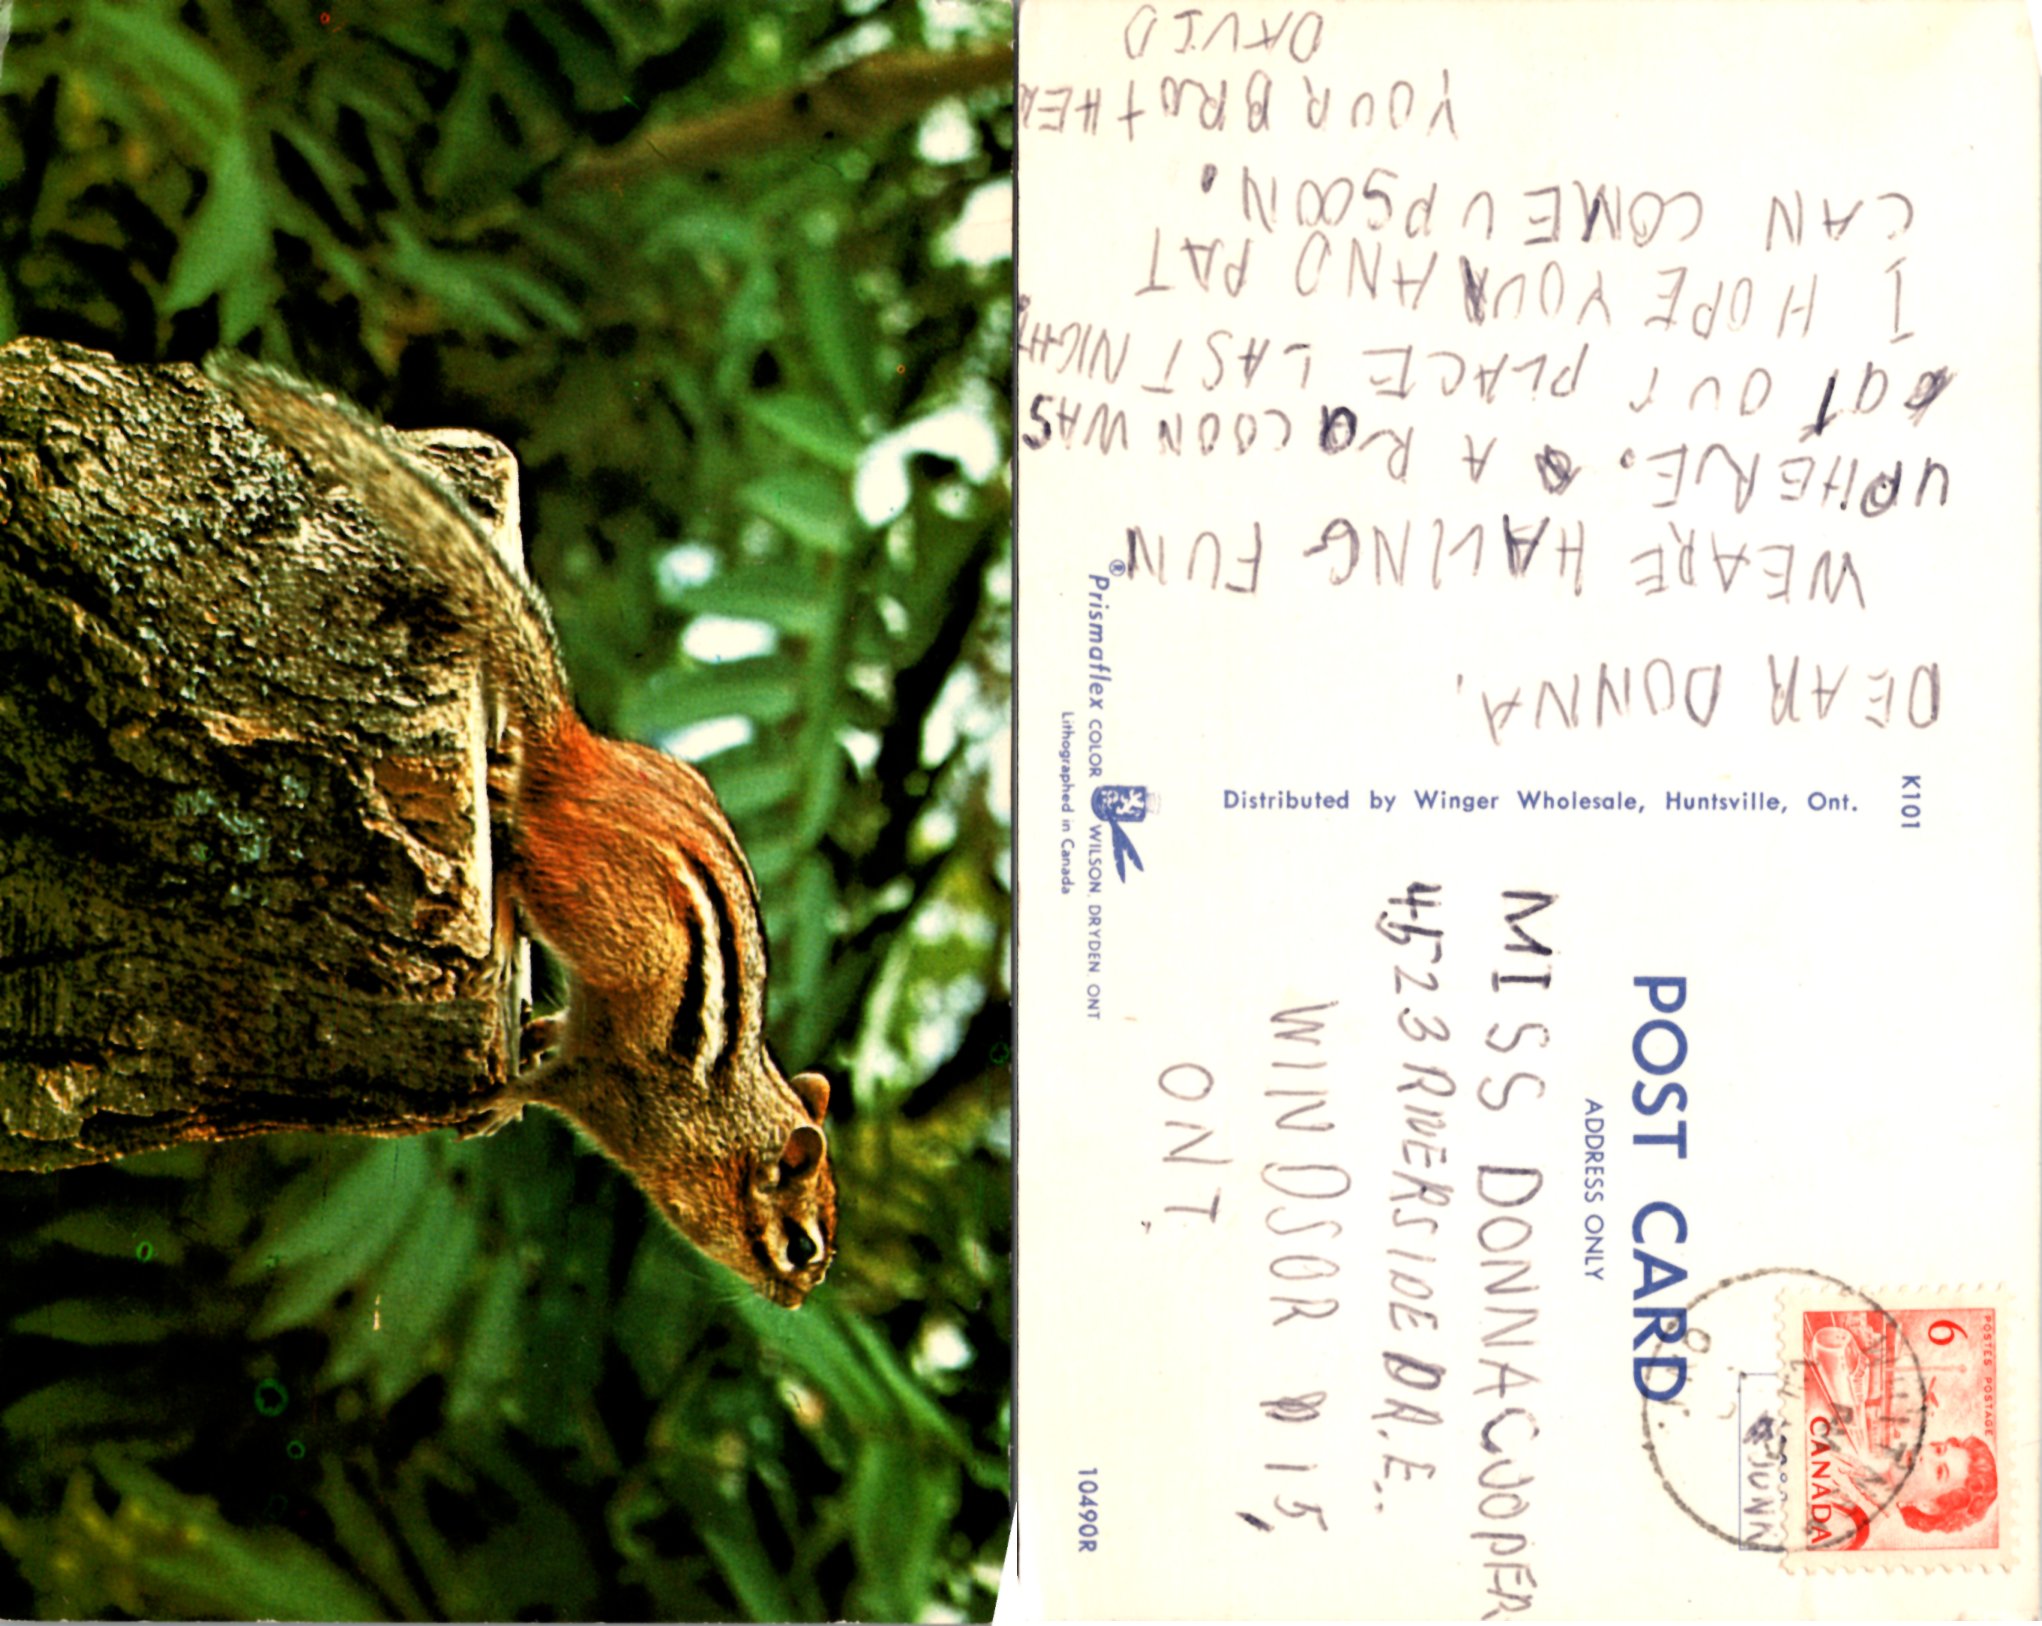 DEAR DONNA,
WEARE HAVING FUN
UPHERE. A RACOON WAS
at OUr PLACE LAST NIGHT.
I HOPE YOUR AND PAT
CAN COME UPSOON.
YOUR BROTHER
DAVID
K101
Distributed by Winger Wholesale, Huntsville, Ont.
Prismaflex® COLOR WILSON, DRYDEN, ONT
Lithographed in Canada
POST CARD
ADDRESS ONLY
MISS DONNA COOPER
4523 RIVERSIDE DR.E..
WINDSOR 15,
ONT.
10490R
POSTES POSTAGE
6
CANADA